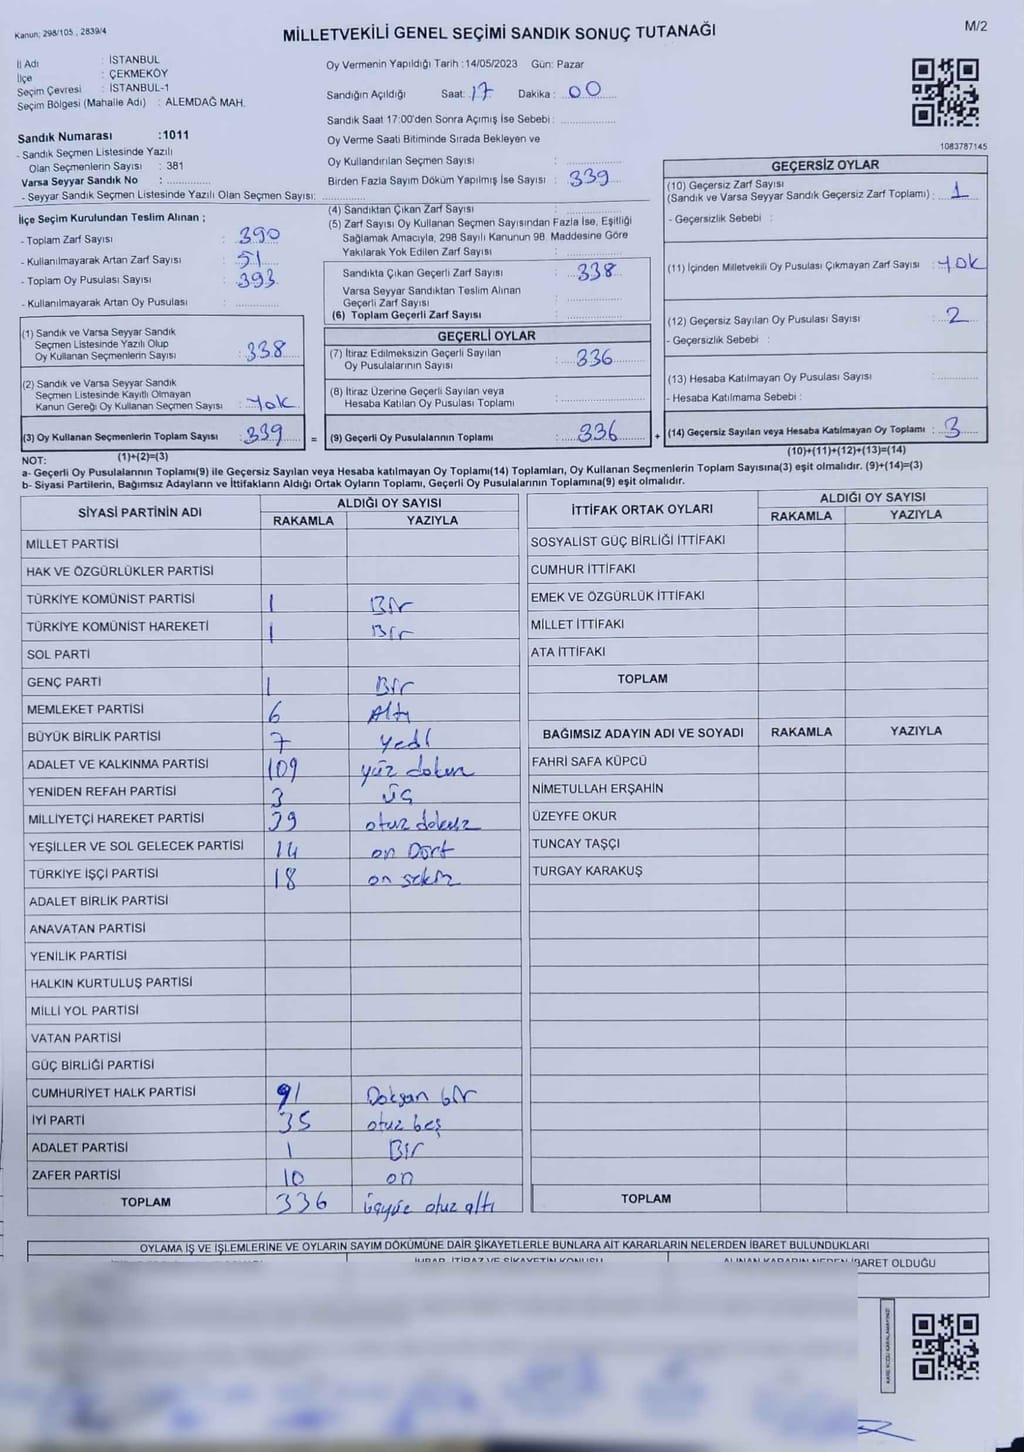 Kanun; 298/105 , 2839/4
MİLLETVEKİLİ GENEL SEÇİMİ SANDIK SONUÇ TUTANAĞI
M/2
İl Adı : İSTANBUL
İlçe : ÇEKMEKÖY
Seçim Çevresi : İSTANBUL-1
Seçim Bölgesi (Mahalle Adı) : ALEMDAĞ MAH.
Sandık Numarası :1011
- Sandık Seçmen Listesinde Yazılı
Olan Seçmenlerin Sayısı : 381
Varsa Seyyar Sandık No :
- Seyyar Sandık Seçmen Listesinde Yazılı Olan Seçmen Sayısı:
Oy Vermenin Yapıldığı Tarih :14/05/2023 Gün: Pazar
Sandığın Açıldığı Saat: 17 Dakika : 00
Sandık Saat 17:00'den Sonra Açımış İse Sebebi :
Oy Verme Saati Bitiminde Sırada Bekleyen ve
Oy Kullandırılan Seçmen Sayısı :
Birden Fazla Sayım Döküm Yapılmış İse Sayısı : 339
1083787145
İlçe Seçim Kurulundan Teslim Alınan ;
- Toplam Zarf Sayısı : 390
- Kullanılmayarak Artan Zarf Sayısı : 51
- Toplam Oy Pusulası Sayısı : 393
- Kullanılmayarak Artan Oy Pusulası :
(1) Sandık ve Varsa Seyyar Sandık
Seçmen Listesinde Yazılı Olup
Oy Kullanan Seçmenlerin Sayısı : 338
(2) Sandık ve Varsa Seyyar Sandık
Seçmen Listesinde Kayıtlı Olmayan
Kanun Gereği Oy Kullanan Seçmen Sayısı : Yok
(3) Oy Kullanan Seçmenlerin Toplam Sayısı : 339 =
(4) Sandıktan Çıkan Zarf Sayısı :
(5) Zarf Sayısı Oy Kullanan Seçmen Sayısından Fazla İse, Eşitliği
Sağlamak Amacıyla, 298 Sayılı Kanunun 98. Maddesine Göre
Yakılarak Yok Edilen Zarf Sayısı :
Sandıkta Çıkan Geçerli Zarf Sayısı : 338
Varsa Seyyar Sandıktan Teslim Alınan
Geçerli Zarf Sayısı :
(6) Toplam Geçerli Zarf Sayısı :
GEÇERLİ OYLAR
(7) İtiraz Edilmeksizin Geçerli Sayılan
Oy Pusulalarının Sayısı : 336
(8) İtiraz Üzerine Geçerli Sayılan veya
Hesaba Katılan Oy Pusulası Toplamı :
(9) Geçerli Oy Pusulalarının Toplamı : 336 +
GEÇERSİZ OYLAR
(10) Geçersiz Zarf Sayısı
(Sandık ve Varsa Seyyar Sandık Geçersiz Zarf Toplamı) : 1
- Geçersizlik Sebebi :
(11) İçinden Milletvekili Oy Pusulası Çıkmayan Zarf Sayısı : Yok
(12) Geçersiz Sayılan Oy Pusulası Sayısı : 2
- Geçersizlik Sebebi :
(13) Hesaba Katılmayan Oy Pusulası Sayısı :
- Hesaba Katılmama Sebebi :
(14) Geçersiz Sayılan veya Hesaba Katılmayan Oy Toplamı : 3
NOT: (1)+(2)=(3)
(10)+(11)+(12)+(13)=(14)
a- Geçerli Oy Pusulalarının Toplamı(9) ile Geçersiz Sayılan veya Hesaba katılmayan Oy Toplamı(14) Toplamları, Oy Kullanan Seçmenlerin Toplam Sayısına(3) eşit olmalıdır. (9)+(14)=(3)
b- Siyasi Partilerin, Bağımsız Adayların ve İttifakların Aldığı Ortak Oyların Toplamı, Geçerli Oy Pusulalarının Toplamına(9) eşit olmalıdır.
SİYASİ PARTİNİN ADI
ALDIĞI OY SAYISI
RAKAMLA YAZIYLA
MİLLET PARTİSİ
HAK VE ÖZGÜRLÜKLER PARTİSİ
TÜRKİYE KOMÜNİST PARTİSİ 1 Bir
TÜRKİYE KOMÜNİST HAREKETİ 1 Bir
SOL PARTİ
GENÇ PARTİ 1 Bir
MEMLEKET PARTİSİ 6 Altı
BÜYÜK BİRLİK PARTİSİ 7 Yedi
ADALET VE KALKINMA PARTİSİ 109 yüz dokuz
YENİDEN REFAH PARTİSİ 3 üç
MİLLİYETÇİ HAREKET PARTİSİ 39 otuz dokuz
YEŞİLLER VE SOL GELECEK PARTİSİ 14 on Dört
TÜRKİYE İŞÇİ PARTİSİ 18 on sekiz
ADALET BİRLİK PARTİSİ
ANAVATAN PARTİSİ
YENİLİK PARTİSİ
HALKIN KURTULUŞ PARTİSİ
MİLLİ YOL PARTİSİ
VATAN PARTİSİ
GÜÇ BİRLİĞİ PARTİSİ
CUMHURİYET HALK PARTİSİ 91 Doksan bir
İYİ PARTİ 35 otuz beş
ADALET PARTİSİ 1 Bir
ZAFER PARTİSİ 10 on
TOPLAM 336 üçyüz otuz altı
İTTİFAK ORTAK OYLARI
ALDIĞI OY SAYISI
RAKAMLA YAZIYLA
SOSYALİST GÜÇ BİRLİĞİ İTTİFAKI
CUMHUR İTTİFAKI
EMEK VE ÖZGÜRLÜK İTTİFAKI
MİLLET İTTİFAKI
ATA İTTİFAKI
TOPLAM
BAĞIMSIZ ADAYIN ADI VE SOYADI RAKAMLA YAZIYLA
FAHRİ SAFA KÜPCÜ
NİMETULLAH ERŞAHİN
ÜZEYFE OKUR
TUNCAY TAŞÇI
TURGAY KARAKUŞ
TOPLAM
OYLAMA İŞ VE İŞLEMLERİNE VE OYLARIN SAYIM DÖKÜMÜNE DAİR ŞİKAYETLERLE BUNLARA AİT KARARLARIN NELERDEN İBARET BULUNDUKLARI
İTİRAZ VE ŞİKAYETİN KONUSU
ALINAN KARARIN NEDEN İBARET OLDUĞU